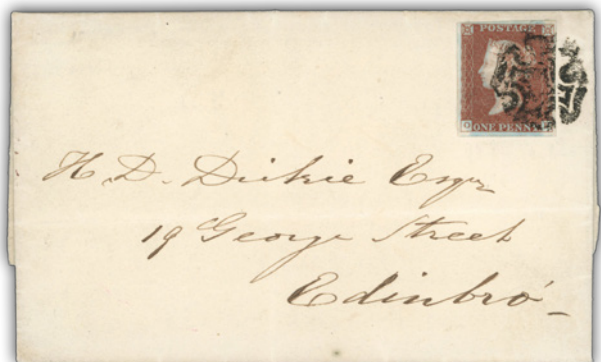 POSTAGE
ONE PENNY
H. D. Dickie Esqr
19 George Street
Edinbro'